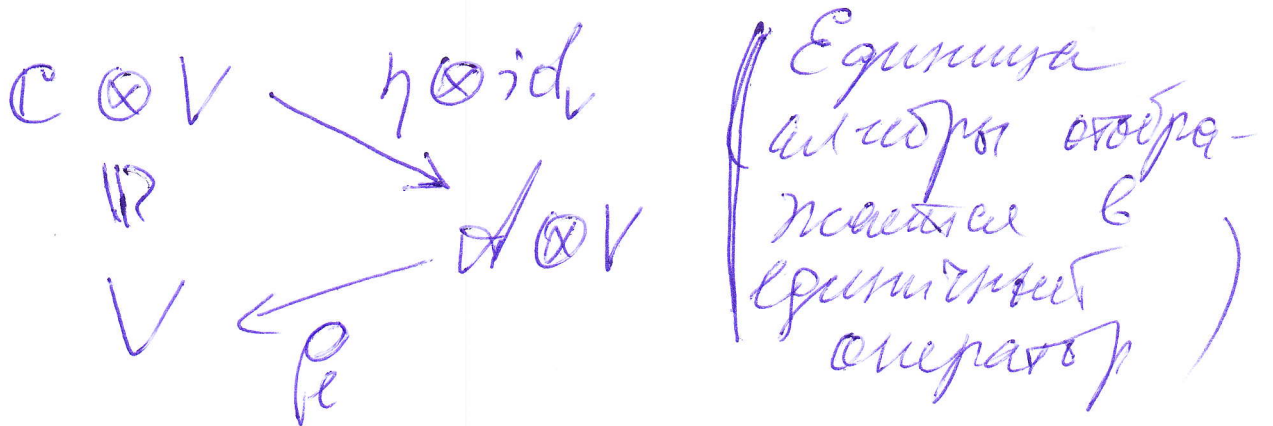 ℂ ⊗ V
η ⊗ id_V
≅
A ⊗ V
V
ρ_e
(Единица
алгебры отобра-
жается в
единичный
оператор)